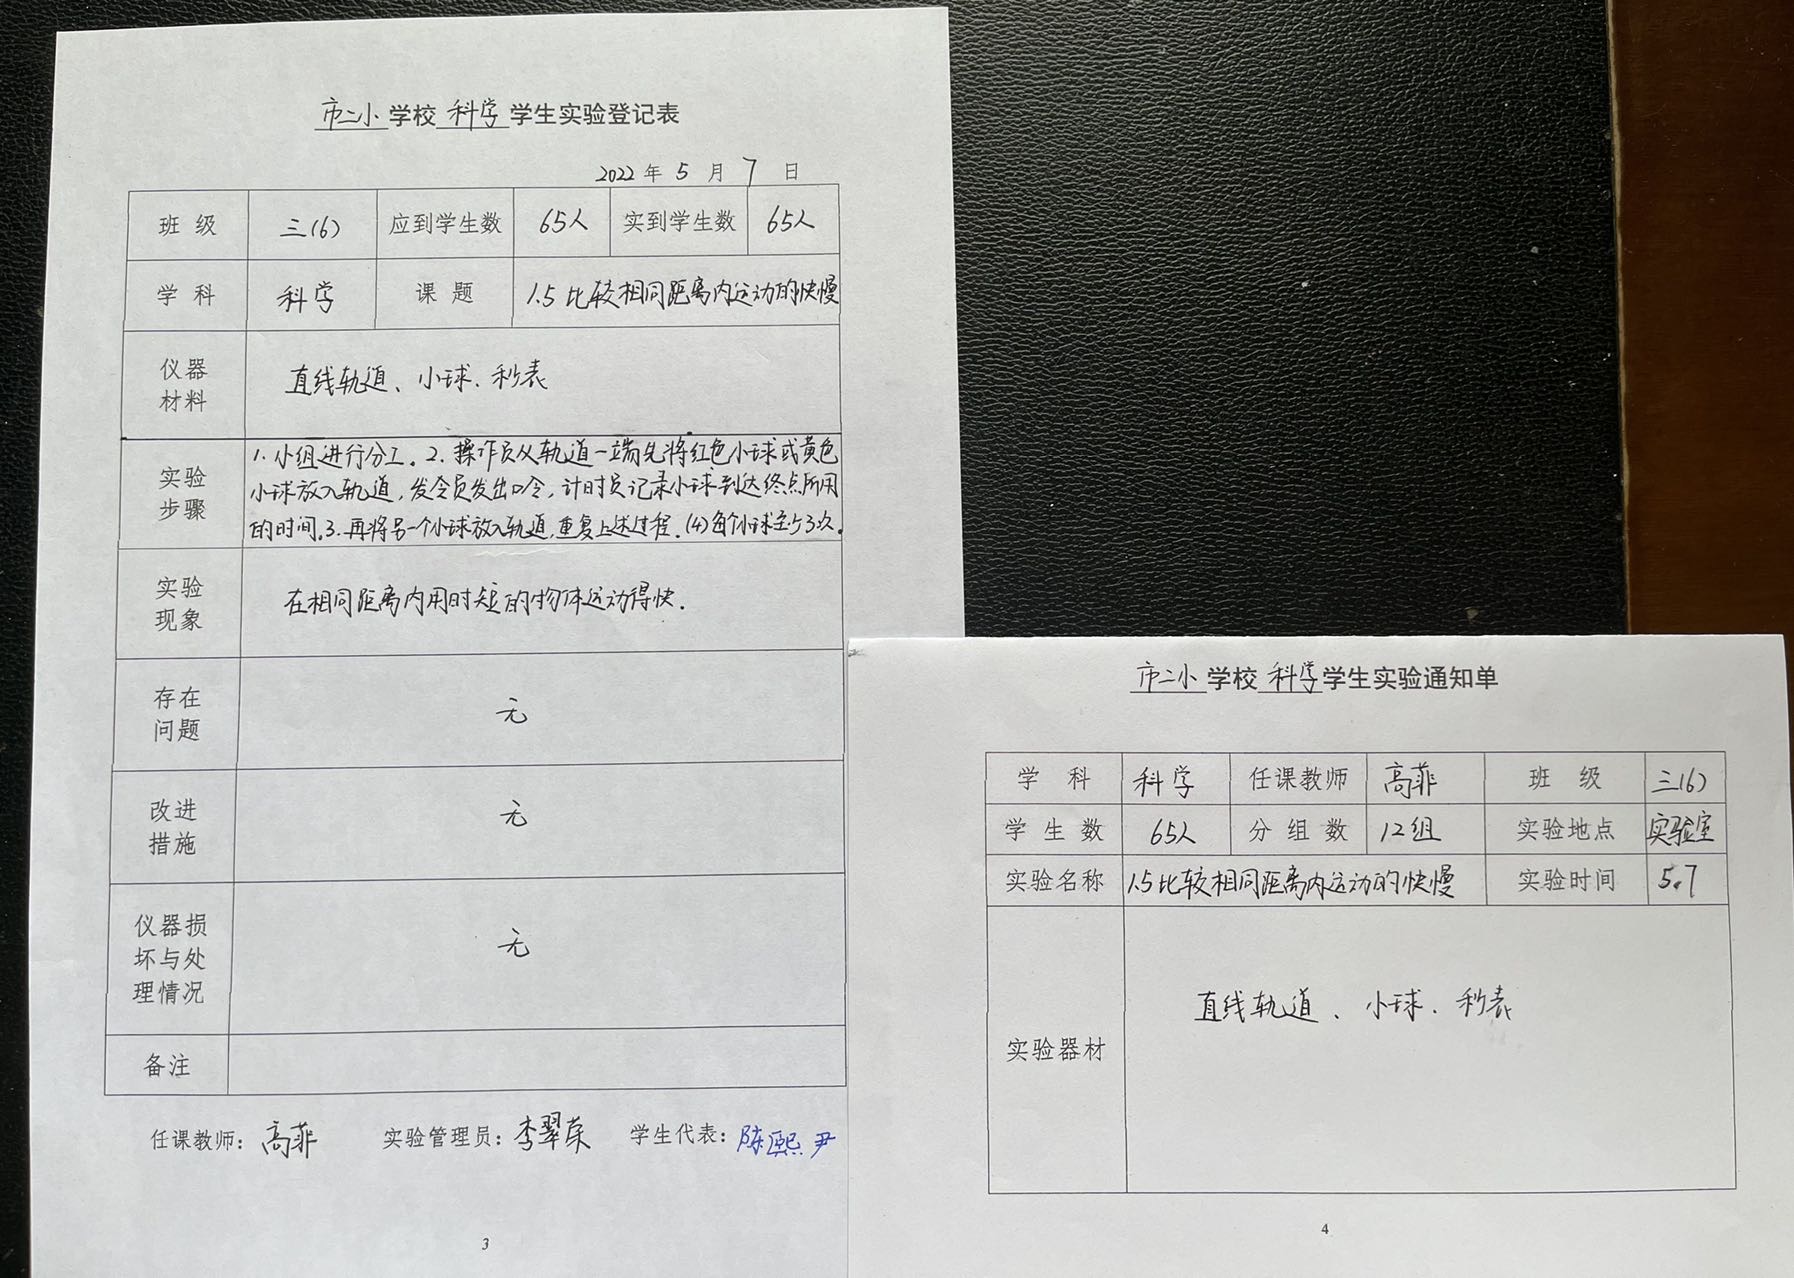 市二小学校科学学生实验登记表
2022年5月7日
班级 三(6) 应到学生数 65人 实到学生数 65人
学科 科学 课题 1.5 比较相同距离内运动的快慢
仪器
材料
直线轨道、小球、秒表
实验
步骤
1.小组进行分工。2.操作员从轨道一端先将红色小球或黄色
小球放入轨道,发令员发出口令,计时员记录小球到达终点所用
的时间。3.再将另一个小球放入轨道,重复上述过程.(4)每个小球至少3次。
实验
现象
在相同距离内用时短的物体运动得快.
存在
问题
无
改进
措施
无
仪器损
坏与处
理情况
无
备注
任课教师:高菲 实验管理员:李翠荣 学生代表:陈熙尹
3
市二小学校科学学生实验通知单
学科 科学 任课教师 高菲 班级 三(6)
学生数 65人 分组数 12组 实验地点 实验室
实验名称 1.5比较相同距离内运动的快慢 实验时间 5.7
实验器材
直线轨道、小球.秒表
4